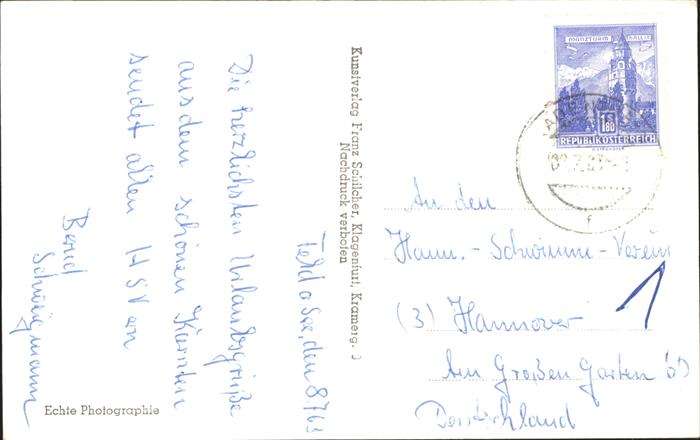 Feld a. See, den 8.7.63
Die herzlichsten Urlaubsgrüße
aus dem schönen Kärnten
sendet allen HSVern
Bernd
Echte Photographie
Kunstverlag Franz Schilcher, Klagenfurt, Kramerg.
Nachdruck verboten
MÜNZTURM HALL I.T.
1.80
REPUBLIK ÖSTERREICH
An den
Hann.-Schwimm-Verein
(3) Hannover
Am Großen Garten
Deutschland